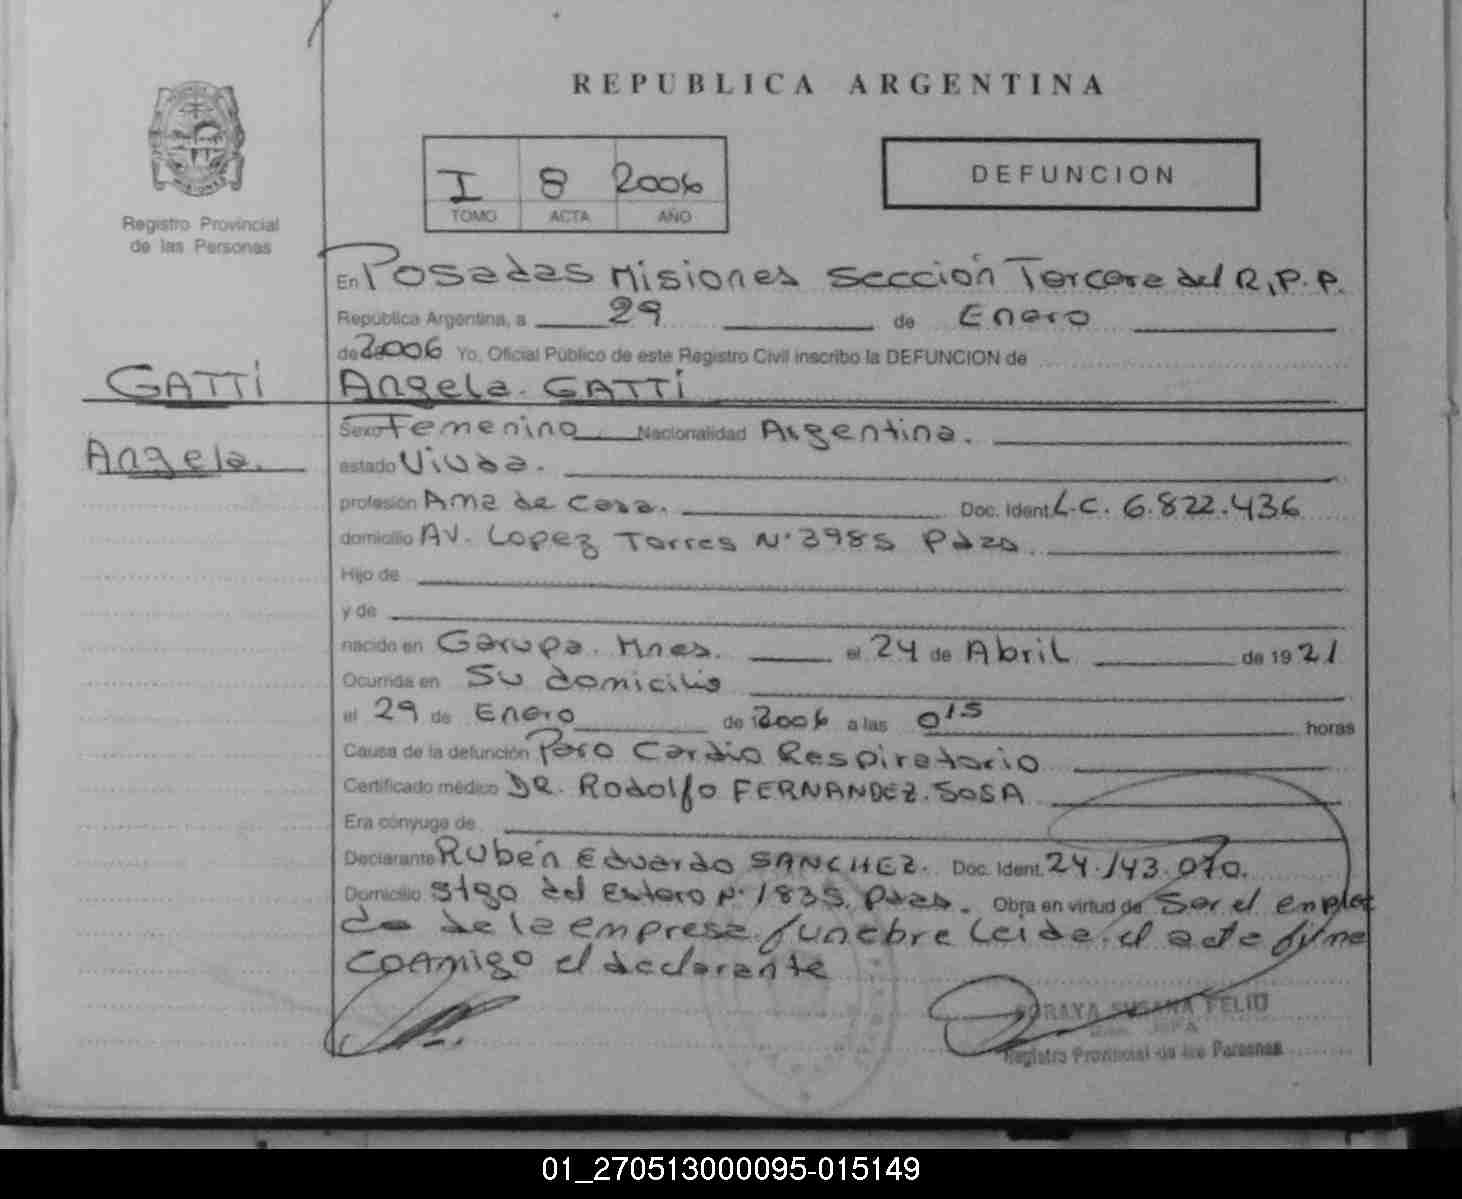 REPUBLICA ARGENTINA
I 8 2006
TOMO ACTA AÑO
DEFUNCION
Registro Provincial
de las Personas
En Posadas Misiones Sección Tercera del R.P.P.
República Argentina, a 29 de Enero
de 2006 Yo, Oficial Público de este Registro Civil inscribo la DEFUNCION de
GATTI
Angela. GATTI
Angela.
Sexo Femenino Nacionalidad Argentina.
estado Viuda.
profesión Ama de Casa. Doc. Ident. L.C. 6.822.436
domicilio AV. Lopez Torres N° 3985 Pdas.
Hijo de
y de
nacido en Garupa. Mnes. el 24 de Abril de 1921
Ocurrida en Su domicilio
el 29 de Enero de 2006 a las 0 15 horas
Causa de la defunción Paro Cardio Respiratorio
Certificado médico DR. Rodolfo FERNANDEZ. SOSA
Era cónyuge de
Declarante Rubén Eduardo SANCHEZ. Doc. Ident. 24.143.070.
Domicilio Stgo del Estero N° 1835 Pdas. Obra en virtud de Ser el emplea
do de la empresa funebre Leida el acta firma
conmigo el declarante
SORAYA SUSANA FELIU
Registro Provincial de las Personas
01_270513000095-015149